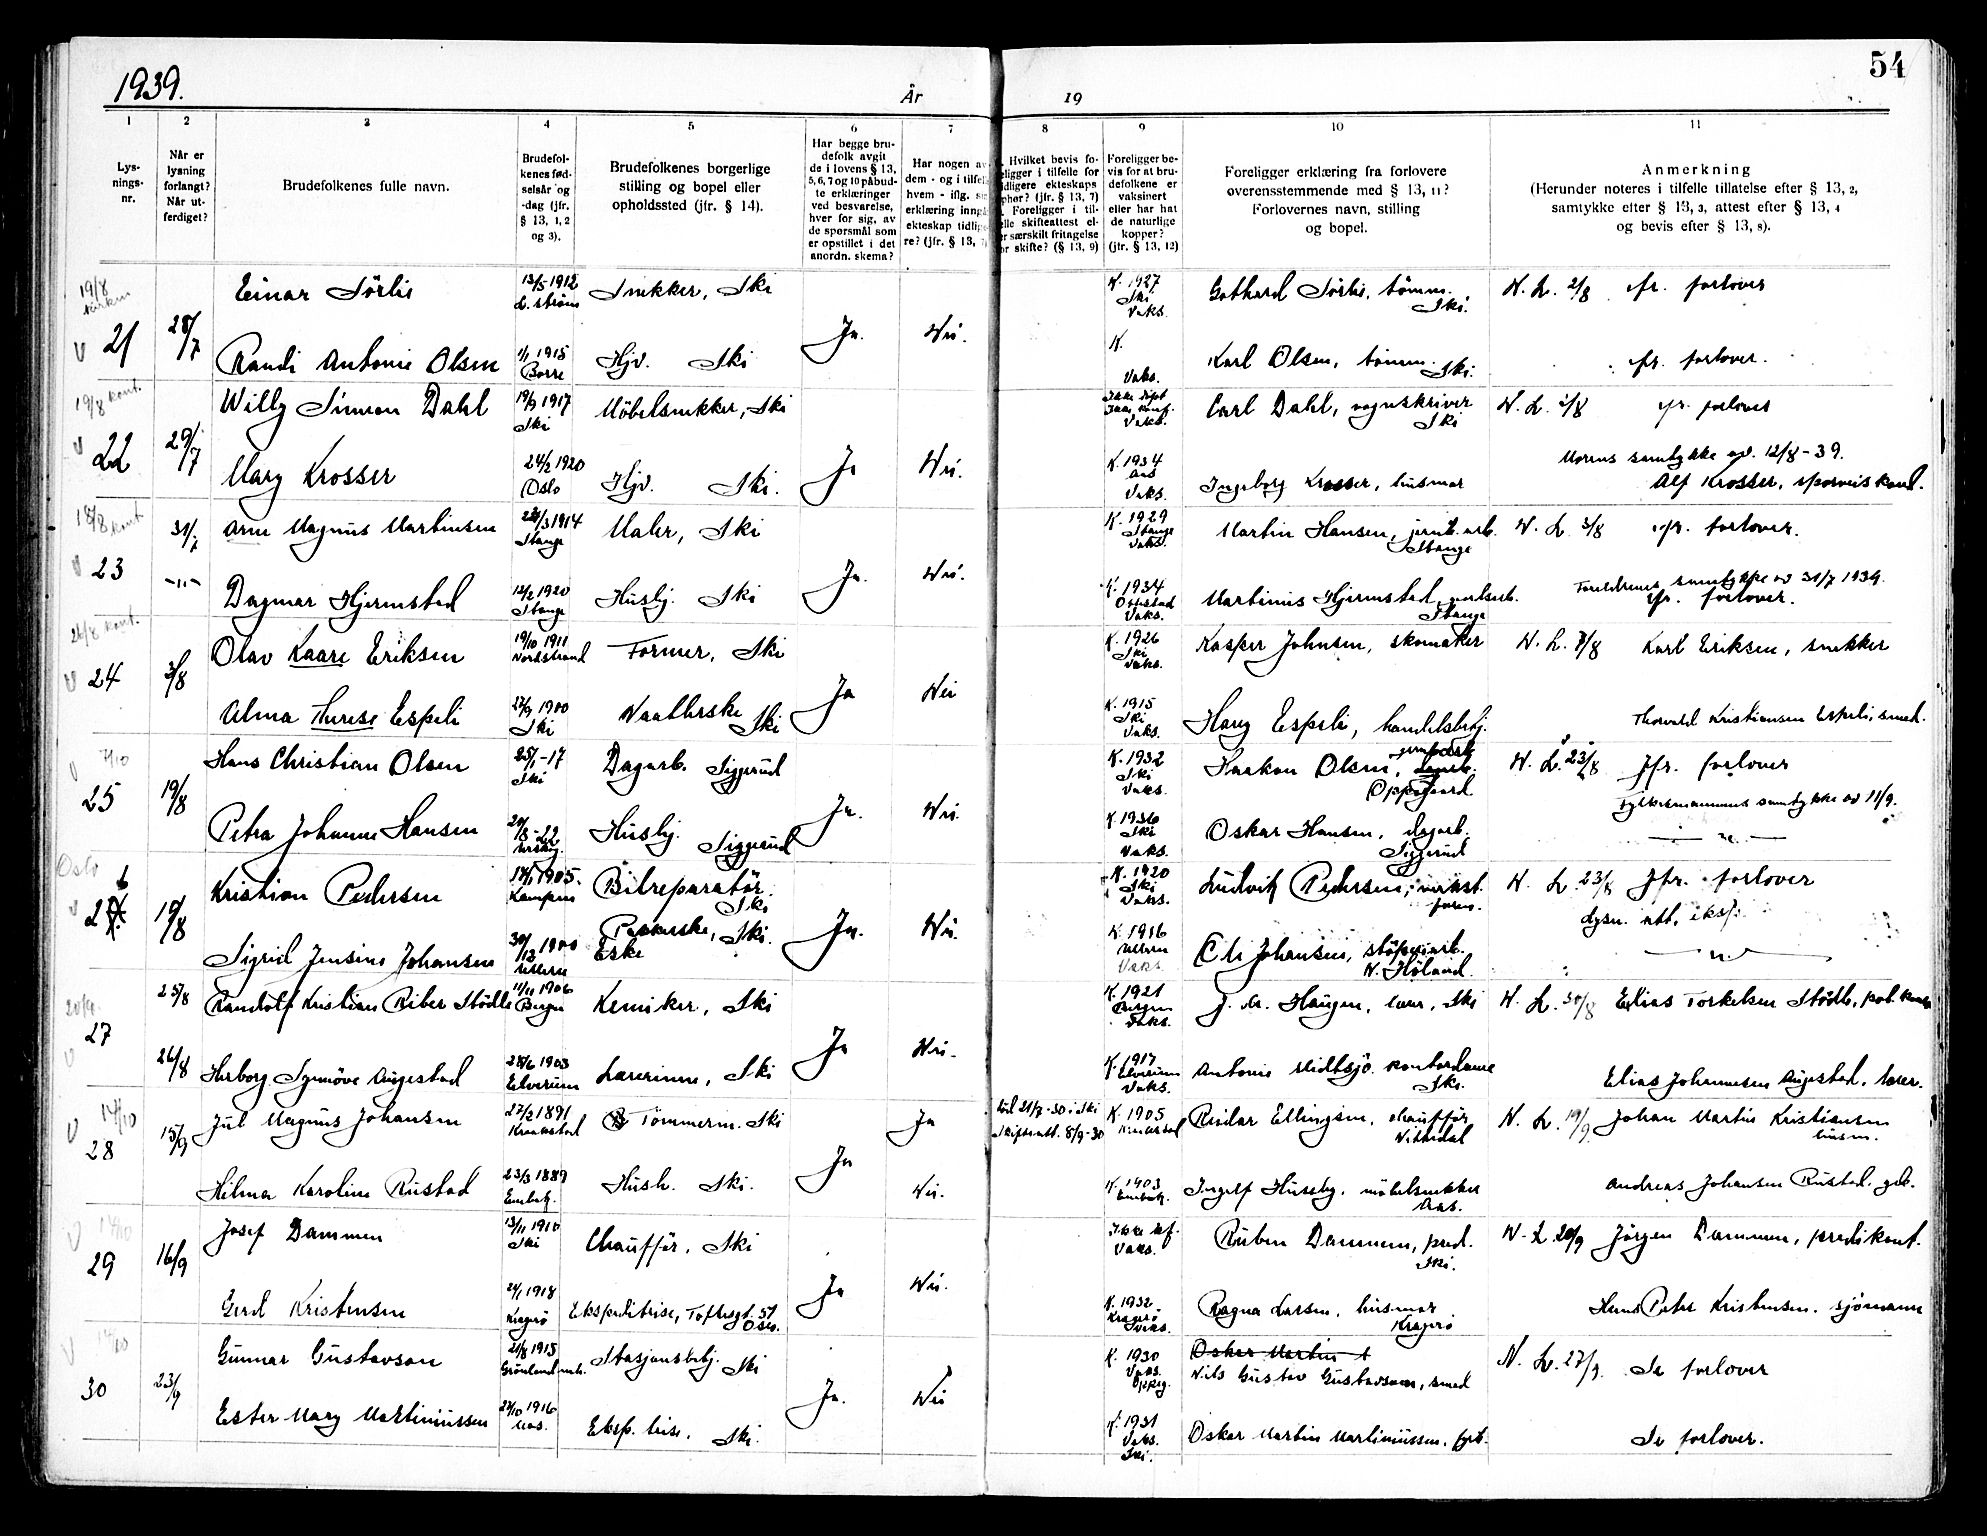 1939.
År
19
54
1 2 3 4 5 6 7 8 9 10 11
Lys-
nings-
nr.
Når er
lysning
forlangt?
Når ut-
ferdiget?
Brudefolkenes fulle navn.
Brudefol-
kenes fød-
selsår og
-dag (jfr.
§ 13, 1, 2
og 3).
Brudefolkenes borgerlige
stilling og bopel eller
opholdssted (jfr. § 14).
Har begge bru-
defolk avgit
de i lovens § 13,
5, 6, 7 og 10 påbud-
te erklæringer
ved besvarelse,
hver for sig, av
de spørsmål som
er opstillet i det
anordn. skema?
Har nogen av
dem - og i tilfel
hvem - iflg. si
erklæring inngå
ekteskap tidlige
re? (jfr. § 13, 7)
. Hvilket bevis fo-
religger i tilfelle for
idligere ekteskaps
phør? (jfr. § 13, 7)
. Foreligger i til-
lle skifteattest el-
er særskilt fritagelse
or skifte? (§ 13, 9)
Foreligger be-
vis for at bru-
defolkene er
vaksinert
eller har hat
de naturlige
kopper?
(jfr. § 13, 12)
Foreligger erklæring fra forlovere
overensstemmende med § 13, 11?
Forlovernes navn, stilling
og bopel.
Anmerkning
(Herunder noteres i tilfelle tillatelse efter § 13, 2,
samtykke efter § 13, 3, attest efter § 13, 4
og bevis efter § 13, 8).
19/8
V 21 28/7
Einar Sörlie 13/5 1912 Snekker, Ski K. 1927 Ski Vaks. Gothard Sörlie, tömm. Ski. N. L. 2/8 jfr. forlover
Ja. Nei.
Randi Antonie Olsen 1/1 1915 Borre Hjv. Ski K. Vaks. Karl Olsen, tömm. Ski. jfr. forlover.
19/8 kont.
V 22 29/7
Willy Simon Dahl 19/9 1917 Ski Möbelsnekker, Ski Vaks. Carl Dahl, vognskriver Ski N. L. 2/8 jfr. forlover
Ja Nei.
Mary Krosser 24/2 1920 Oslo Hjv. Ski. K. 1934 Aas Vaks. Ingeborg Krosser, husmor Morens samtykke av. 12/8-39.
Alf Krosser, sporveiskond.
kont.
V 23 31/7 -"-
Arne Magnus Martinsen 1914 Stange Maler, Ski K. 1929 Stange Vaks. Martin Hansen, jernb. arb. Stange N. L. 3/8 jfr. forlover.
Ja. Nei.
Dagmar Hjermstad 12/2 1920 Stange Husbj. Ski K. 1934 Ottestad Vaks. Martinius Hjermstad, Stange Foreldrenes samtykke av 31/7 1939.
jfr. forlover.
26/8 kont.
V 24 3/8
Olav Kaare Eriksen 19/10 1911 Nordstrand Former, Ski K. 1926 Ski Vaks. Kasper Johnsen, skomaker N. L. 7/8 Karl Eriksen, snekker
Ja Nei
Alma Therese Espeli 27/9 1900 Ski Ski K. 1915 Ski Vaks. Harry Espeli, handelsbetj. Thorvald Kristiansen Espeli, smed.
7/10
V 25 19/8
Hans Christian Olsen 25/1-17 Ski Dagarb. Siggerud K. 1932 Ski Vaks. Haakon Olsen, Oppegaard N. L. 23/8 Jfr. forlover
Ja. Nei.
Petra Johanne Hansen Husbj. Siggerud K. 1936 Ski Vaks. Oskar Hansen, dagarb. Siggerud Fylkesmannens samtykke av 11/9.
- " -
Oslo
V 26 19/8
Kristian Pedersen 1905. Kampen Bilreparatör. Ski K. 1920 Ski Vaks. Ludvik Pedersen, verkst. form. N. L. 23/8 Jfr. forlover
Ja. Nei.
Sigrid Jensine Johansen 30/12 1900 Ski. Eske K. 1916 Vaks Johansen, N. Höland. - " -
20/9.
V 27 25/8
Randolf Kristian Reiber Stödle 11/11 1906 Bergen Kemiker, Ski K. 1921 Bergen Vaks. Haugen, lærer, Ski N. L. 30/8 Elias Torkelsen Stödle,
Ja Nei.
26/8 Herborg Synnöve Augestad 28/6 1903 Elverum Lærerinne, Ski K. 1917 Elverum Vaks. Antonie Midtsjö, kontordame Ski. Elias Johannesen Augestad, lærer.
14/10
V 28 15/9
Jul Magnus Johansen 27/2 1891 Kraakstad Tömmerm. Ski Ja 21/7-30 i Ski Skifteatt. 8/9-30 K. 1905 Kraakstad Reidar Ellingsen, chaufför Nittedal N. L. 19/9. Johan Martin Kristiansen
Ja
Hilma Karoline Rustad 23/3 1889 Enebak. Hush. Ski. Nei. K. 1903 Enebak. Ingolf Hussby, möbelsnekker Aas. Andreas Johansen Rustad, gbr.
14/10
V 29 16/9
Josef Dammen 13/11 1910 Ski Chaufför, Ski Ikke kf. Vaks. Ruben Dammen, pred. Ski. N. L. 20/9 Jörgen Dammen, predikant.
Ja Nei.
Gerd Kristensen 1918 Kragerö Ekspeditrise, Toftesgt. 57 Oslo. K. 1932 Kragerö Vaks. Ragna Larsen, husmor Kragerö Hans Peter Kristensen, sjömann
14/10
V 30 23/9
Gunnar Gustavson 21/8 1915 Grönland Stasjonsbetj. Ski K. 1930 Vaks. Oppeg. Oskar Martin
Nils Gustav Gustavson, smed N. L. 27/9. Se forlover
Ja. Nei
Ester Mary Martiniussen 27/10 1916 Aas. Eksp. trise, Ski. K. 1931 Vaks. Ski. Oskar Martin Martiniussen, Se forlover.